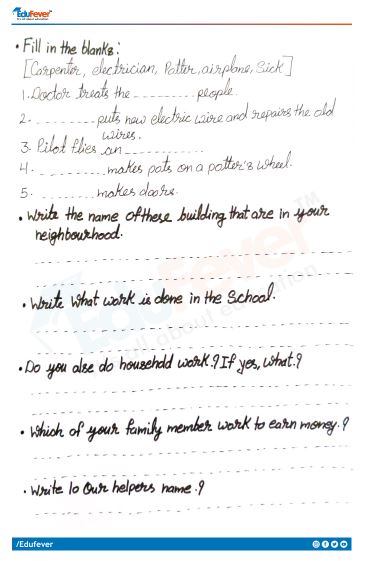 EduFever
It's all about education
• Fill in the blanks:
[Carpenter, electrician, Potter, airplane, Sick]
1. Doctor treats the _________ people.
2. _________ puts new electric wire and repairs the old
wires.
3. Pilot flies an _________.
4. _________ makes pots on a potter's wheel.
5. _________ makes doors.
• Write the name of these building that are in your
neighbourhood.
• Write what work is done in the School.
• Do you alse do household work.? If yes, what.?
• Which of your family member work to earn money.?
• Write 10 Our helpers name.?
EduFever
all about education
TM
/Edufever